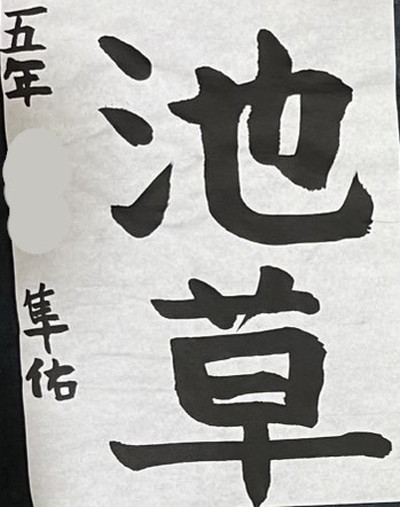 池草
五年
隼佑